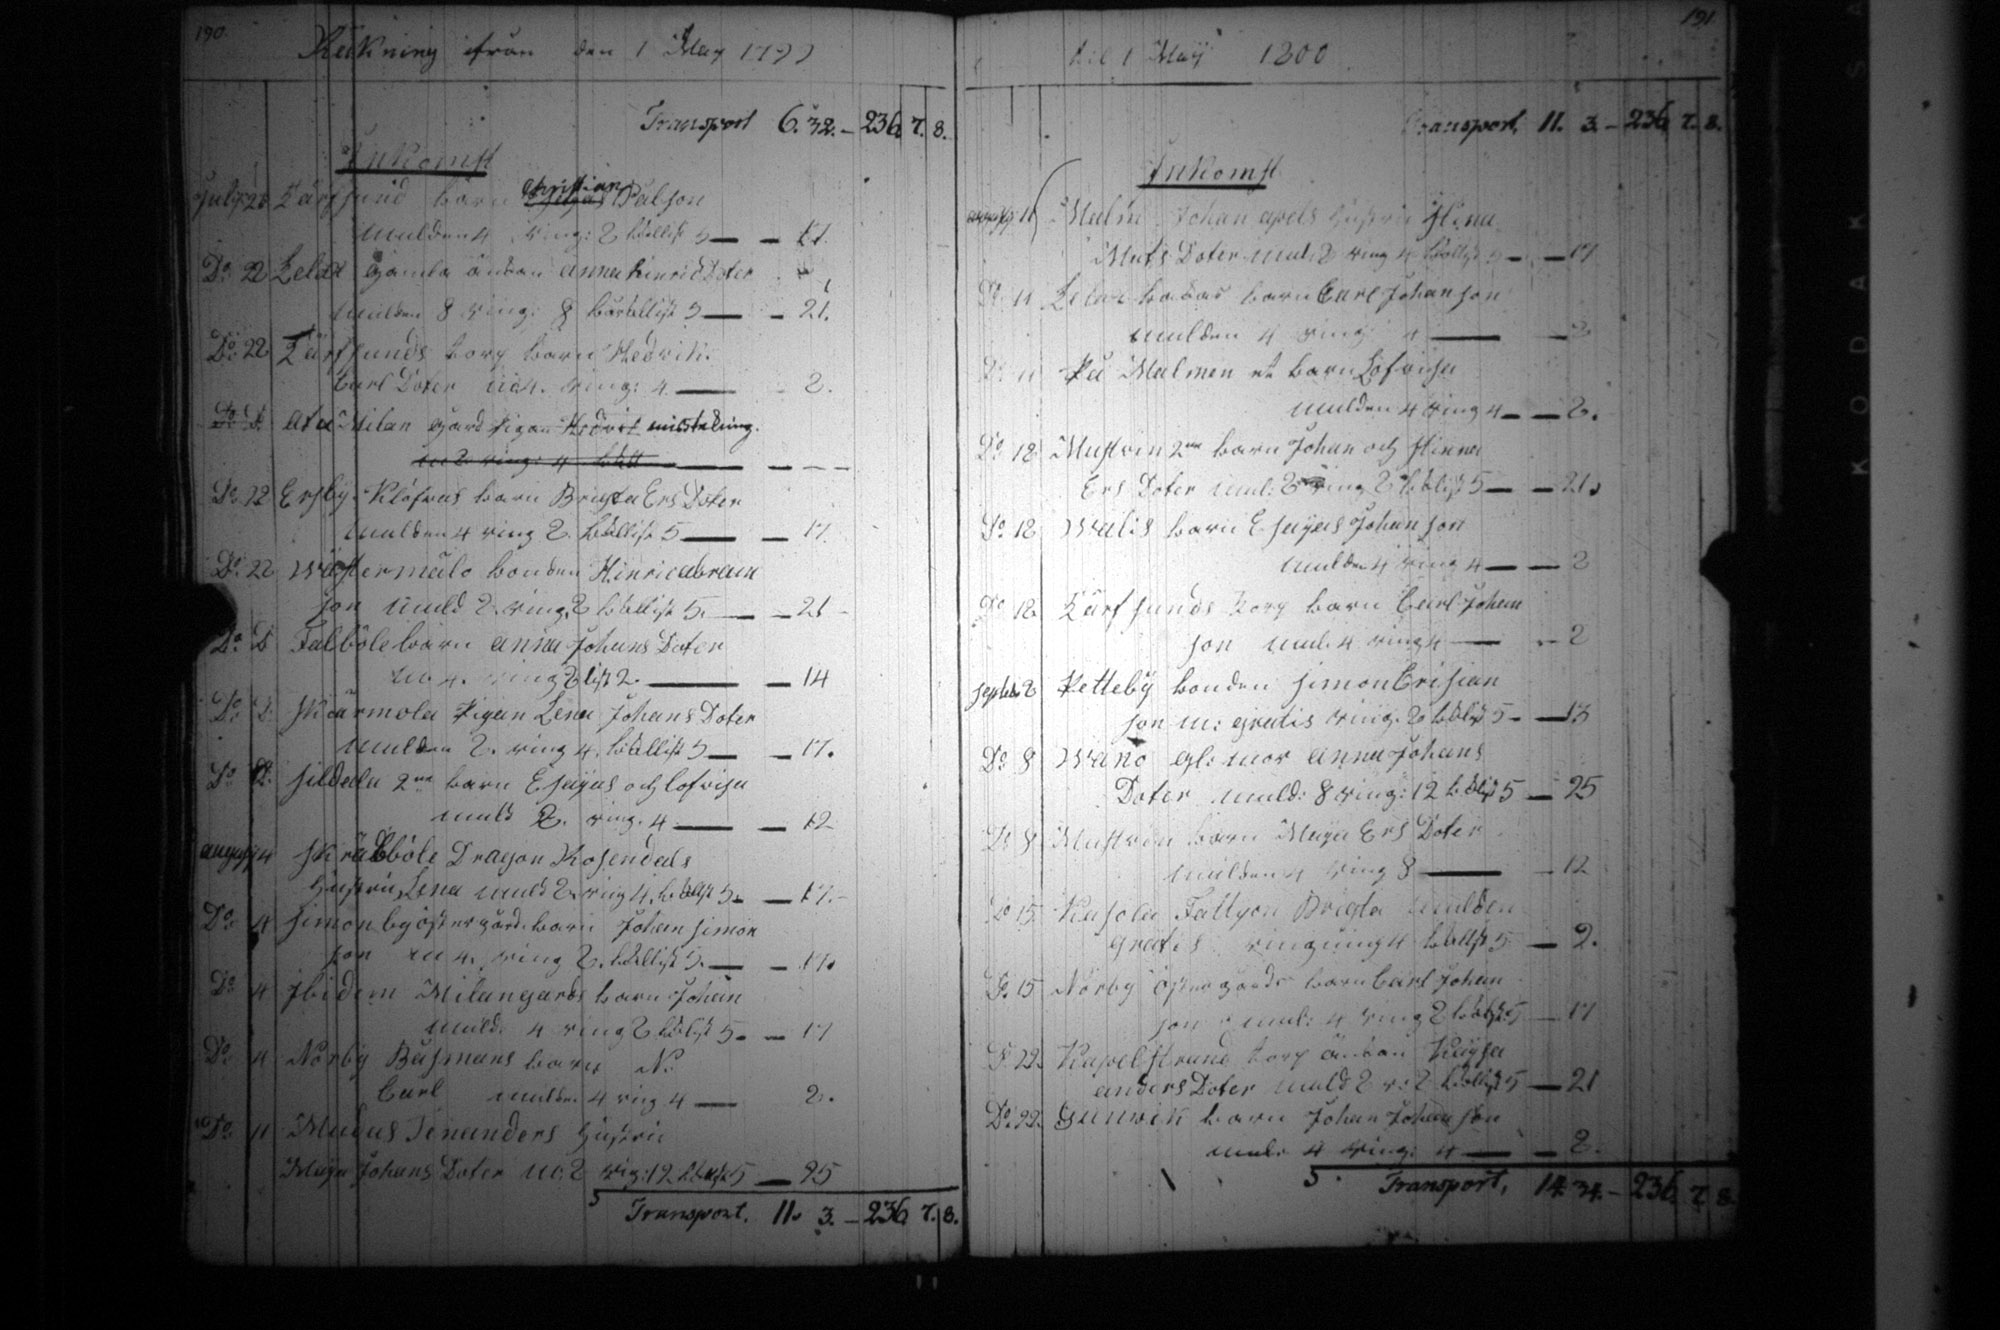 190.
Räkning ifrån den 1 May 1799
Transport 6. 32. – 236 7. 8.
Inkomst
July 21 Lärfsund barn Christian Palson
mulden 4 ring: 2 bållist 5 — – 17.
Do 22 Gamla änkan Anna HinricDoter
mulden 8 ring: 8 bårbellist 5 — – 21.
Do: 22 Lärfsunds torp barn Hedvik
Carl Doter m 4. ring: 4 — – 2.
Do D Ata Milan gård Pigan Hedvik misstelning.
m 2 ring: 4 — – – –
Do: 22 Ersby Klåfvas barn Brigta Ers Doter
mulden 4 ring 2. bållist 5 — – 17.
Do: 22 Wästermålo bonden Hinric abram
son muld 2. ring. 2 bållist 5. — – 21 –
Do: D Falböle barn Anna Johans Doter
m 4. ring 2 list 2. — – 14
Do: D: Skärmola Pigan Lena Johans Doter
mulden 2. ring 4. bållist 5 — – 17.
Do D: Sildala 2ne barn Esayas och Lofvisa
muld 2. ring. 4 — – 12
august 4 Skräbböle Dragon Rosendals
Hustru Lena muld 2. ring 4. bållist 5. — 17. –
Do: 4 Simonby östergård barn Johan Simon
son m 4. ring 2. bållist 5. — – 17.
Do 4 Ibidem Milangårds barn Johan
muld: 4 ring 2 bålist 5 – – 17
Do: 4 Norby Båsmans barn N:
Carl mulden 4 ring 4 — 2.
Do: 11 Hustru
Maya Johans Doter m: 2 rig: 12 bållist 5 — 25
5 Transport. 11. 3. – 236 7. 8.
191
til 1 May 1800
Transport, 11. 3. – 236 7. 8.
Inkomst
august: 11 Malm Johan apels Hustru Stina
Mats Doter mul: 2 ring 4 bållist 5 – – 17
Do: 11 barn Carl Johan son
mulden 4 ring: 4 — – 2
Do: 11 På Malmen et barn Lofvisa
mulden 4 ring 4 – – 2.
Do 18 Mustvin 2ne barn Johan och Stinna
Ers Doter mul: 2 ring 2 bålist 5 – – 21.
Do 18 Walis barn Esayas Johan son
mulden 4 ring 4 – – 2
Do 18. Lärfsunds torp barn Carl Johan
son mul: 4 ring 4 — – 2
septeb: 2 Petteby bonden Simon Crisian
son m: gratis ring: 2 bålist 5 – – 13
Do: 8 Wano gl: mor Anna Johans
Doter muld: 8 ring: 12 bålist 5 — 25
Do 8 Mustven barn Maya Ers Doter
mulden 4 ring 8 — – 12
Do 15 Kasola Fattyon Brigta mulden
gratis ringning 4 bållist 5 – 2.
Do: 15 Norby Östergårds barn Carl Johan
son mul: 4 ring 2 bålist 5 – 17
D: 22. Kapelstrand torp änkan Kaysa
anders Doter muld 2 r: 2 bållist 5 — 21
Do: 22. Gunvik barn Johan Johan son
mul: 4 ring: 4 — – 2.
5. Transport, 14. 34. – 236 7. 8.
KODAK SA